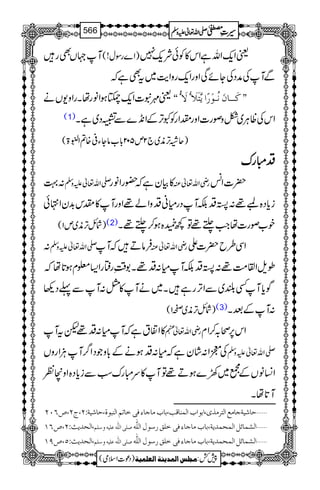 سیرتِ مصطفیٰ صلی اللہ تعالیٰ علیہ وسلم 566
یعنی ایک اللہ ہے اس کا کوئی شریک نہیں (اے رسول!) آپ جہاں بھی رہیں
گے آپ کی مدد کی جائے گی اور ایک روایت میں یہ بھی ہے کہ
"یعنی مہر نبوت ایک چمکتا ہوا نور تھا۔ راویوں نے
اس کی ظاہری شکل وصورت اور مقدار کو کبوتر کے انڈے سے تشبیہ دی ہے۔(1)
(حاشیہ ترمذی ج۲ ص۲۰۵ باب ماجاء فی خاتم النبوۃ)
قد مبارک
حضرت انس رضی اللہ تعالیٰ عنہ کا بیان ہے کہ حضور انور صلی اللہ تعالیٰ علیہ وسلم نہ بہت
زیادہ لمبے تھے نہ پستہ قد بلکہ آپ درمیانی قد والے تھے اور آپ کا مقدس بدن انتہائی
خوب صورت تھا جب چلتے تھے تو کچھ خمیدہ ہو کر چلتے تھے۔(2) (شمائل ترمذی ص۱)
اسی طرح حضرت علی رضی اللہ تعالیٰ عنہ فرماتے ہیں کہ آپ صلی اللہ تعالیٰ علیہ وسلم نہ
طویل القامت تھے نہ پستہ قد بلکہ آپ میانہ قد تھے۔ بوقت رفتار ایسا معلوم ہوتا تھا کہ
گویا آپ کسی بلندی سے اتر رہے ہیں۔ میں نے آپ کا مثل نہ آپ سے پہلے دیکھا
نہ آپ کے بعد۔(3) (شمائل ترمذی صفحہ۱)
اس پر صحابہ کرام رضی اللہ تعالیٰ عنہم کا اتفاق ہے کہ آپ میانہ قد تھے لیکن یہ آپ
صلی اللہ تعالیٰ علیہ وسلم کی معجزانہ شان ہے کہ میانہ قد ہونے کے باوجود اگر آپ ہزاروں
انسانوں کے مجمع میں کھڑے ہوتے تھے تو آپ کا سر مبارک سب سے زیادہ اونچا نظر
آتا تھا۔
حاشیۃ جامع الترمذی، ابواب المناقب، باب ماجاء فی خاتم النبوۃ، حاشیۃ: ۲، ج۲، ص۲۰۶
الشمائل المحمدیۃ، باب ماجاء فی خلق رسول اللہ صلی اللہ علیہ وسلم، الحدیث: ۲، ص۱۶
الشمائل المحمدیۃ، باب ماجاء فی خلق رسول اللہ صلی اللہ علیہ وسلم، الحدیث: ۵، ص۱۹
پیش کش: مجلس المدینۃ العلمیۃ (دعوت اسلامی)